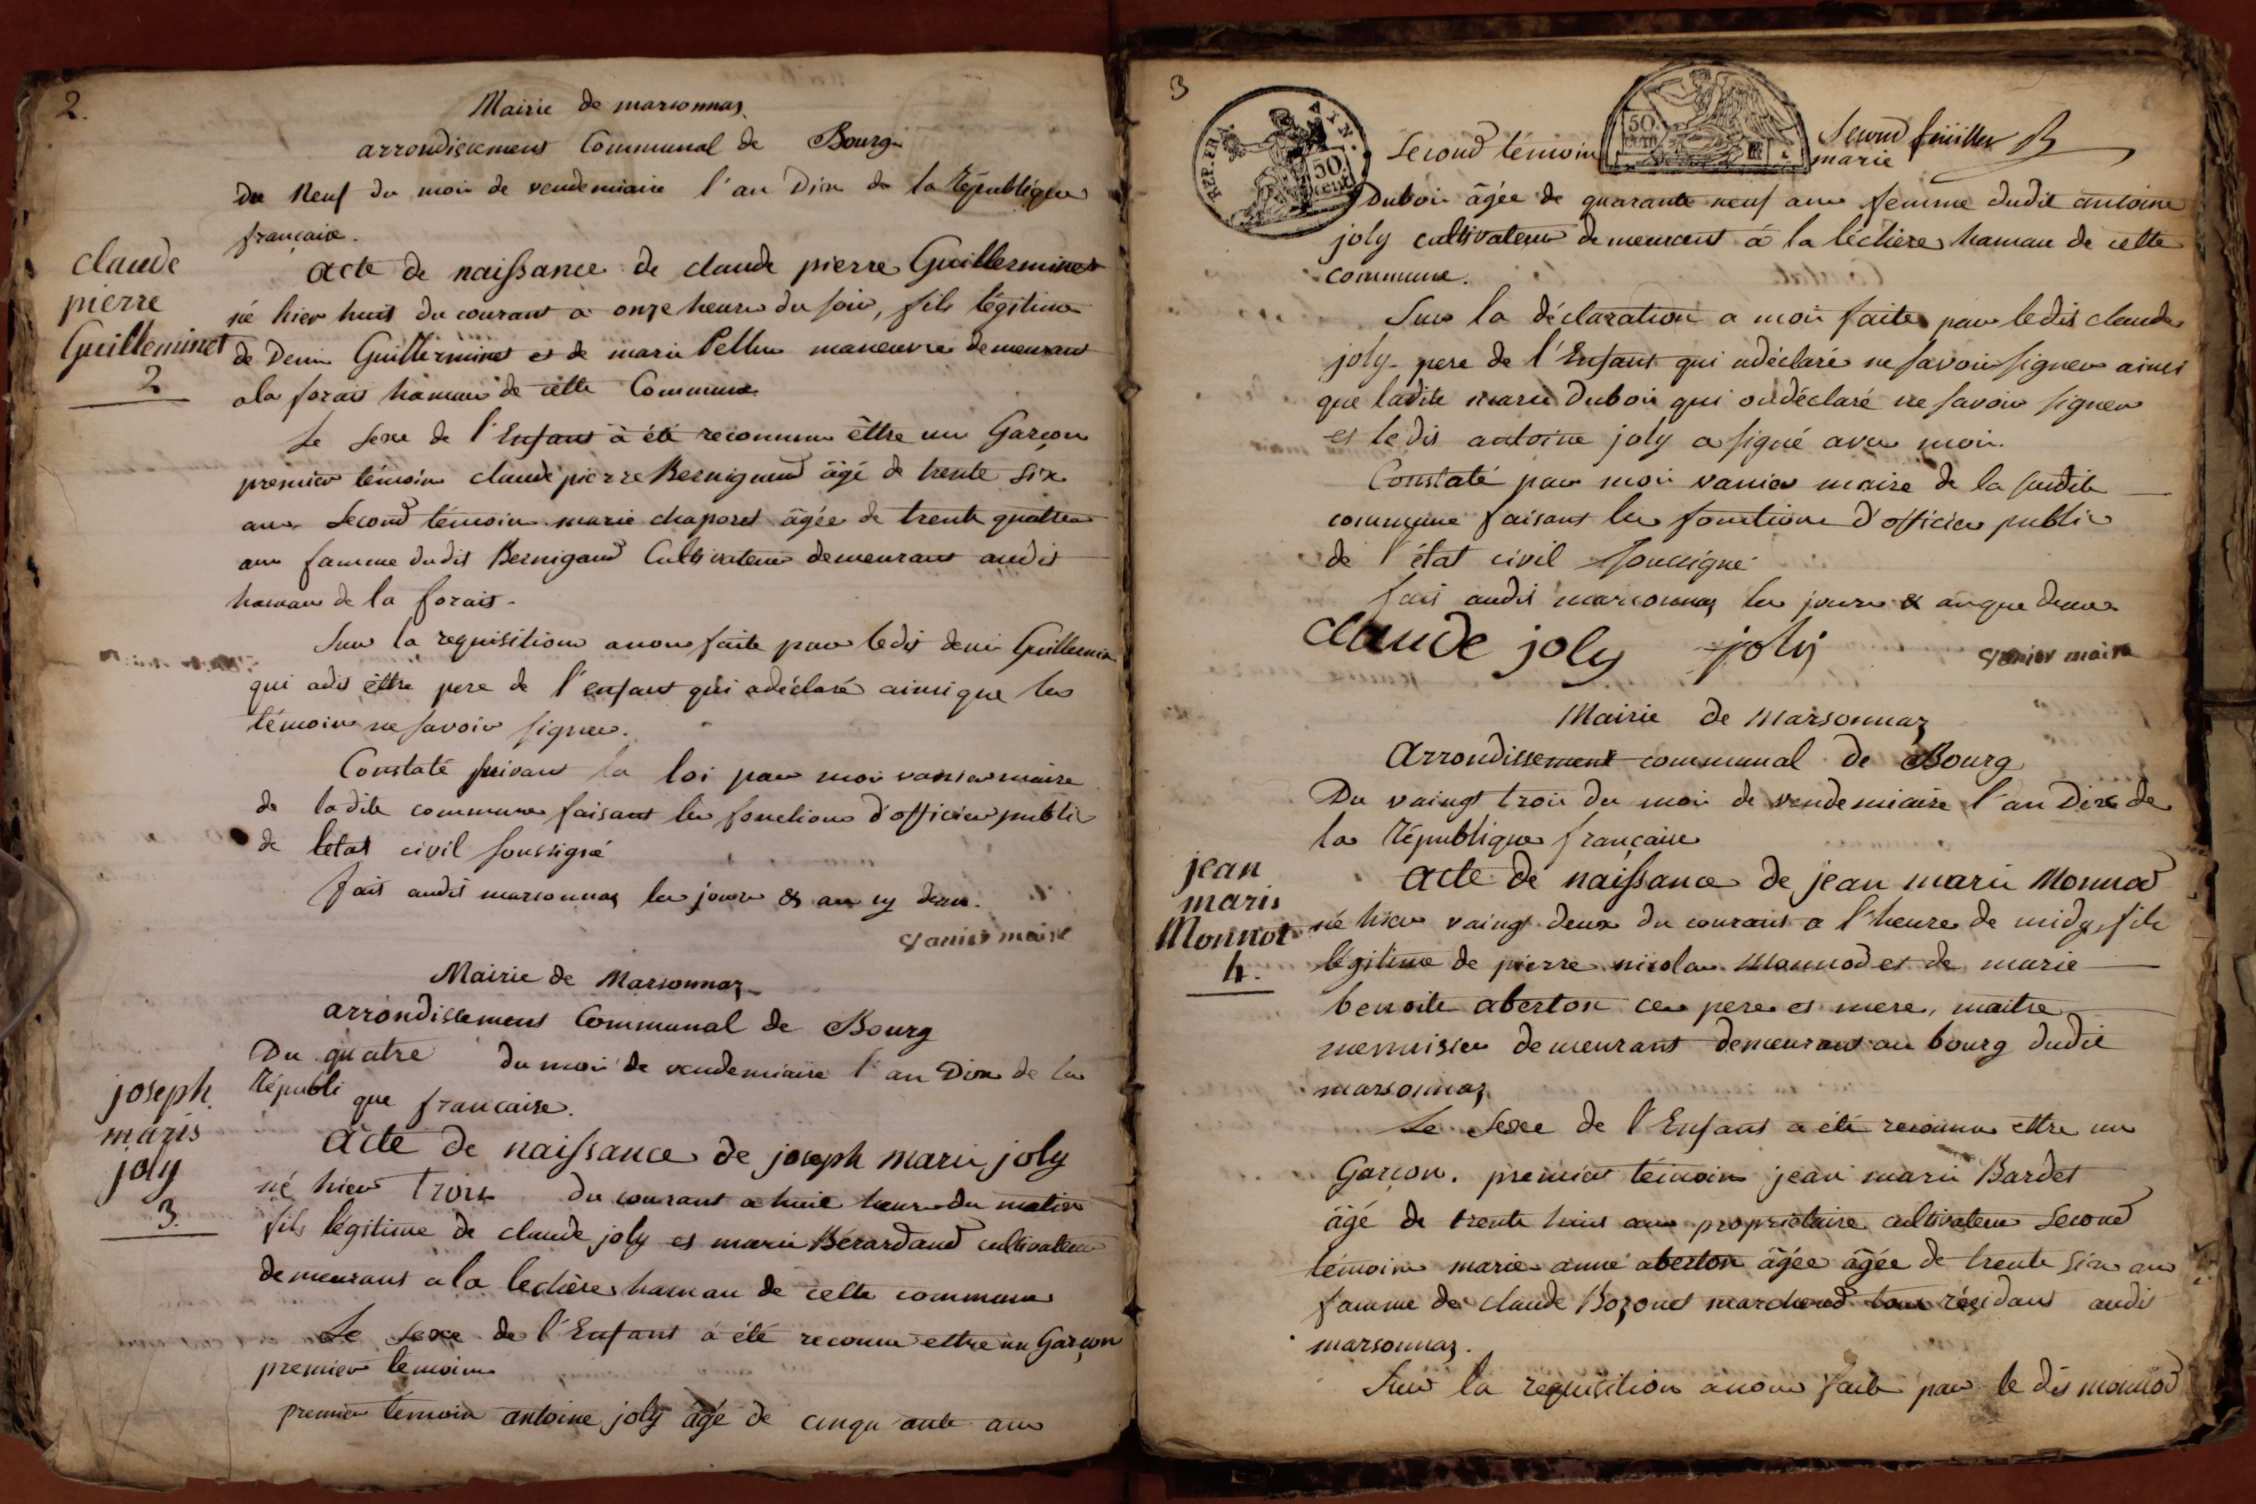 2.
Mairie de marsonnaz
arrondissement Communal de Bourg
Du Neuf du mois de vendemiaire l'an Dix de la République
française.
claude
pierre
Guilleminet
2
acte de naissance de claude pierre Guilleminet
né hier huit du courant a onze heures du soir, fils légitime
de Denis Guilleminet et de marie Pellus manœuvre demeurant
a la forais hamau de cette Commune
Le sexe de l'Enfant à été reconnu êttre un Garçon
premier témoin claude pierre Bernigaud âgé de trente six
ans second témoin marie chaparet âgée de trente quatre
ans famme dudit Bernigaud Cultivateur demeurant audit
hamau de la forais.
Sur la requisition a nous faite par ledit denis Guillemin
qui a dit êttre pere de l'enfant qui a déclaré ainsi que les
témoins ne savoir signer.
Constaté suivant la loi par moi vanier maire
de ladite commune faisant les fonctions d'officier public
de létat civil soussigné
fait audit marsonnaz les jours & an cy deu.
vanier maire
Mairie de Marsonnaz
arrondissement Communal de Bourg
Du quatre du mois de vendemiaire l'an Dix de la
Républi que francaise.
joseph
maris
joly
3.
acte de naissance de joseph marie joly
né hier trois du courant a huit heures du matin
fils légitime de claude joly et marie Bérardaud cultivateur
demeurant a la lechère hamau de cette commune
Le sexe de l'Enfant à été reconnu ettre un Garçon
premier temoin
premier temoin antoine joly âgé de cinqu ante ans
3
REP. FRA.
50
CENT.
50.
CENT.
Second feuillet
Second témoin marie
Dubois âgée de quarante neuf ans femme dudit antoine
joly cultivateur demeurant à la léchère hamau de cette
commune.
Sur la déclaration a moi faite par ledit claude
joly pere de l'Enfant qui a déclaré ne savoir signer ainsi
que ladite marie Dubois qui ont déclaré ne savoir signer
et ledit antoine joly a signé avec moi.
Constaté par moi vanier maire de la susdite
commune faisant les fonctions d'officier public
de l'état civil soussigné
fait audit marsonnaz les jours & an que dessus
claude joly joly vanier maire
Mairie de Marsonnaz
Arrondissement communal de Bourg
Du vaingt trois du mois de vendemiaire l'an Dix de
la République française
jean
maris
Monnot
4.
acte de naissance de jean marie Monnod
né hier vaingt deux du courant a l'heure de midy, fils
légitime de pierre nicolas Monnod et de marie
benoite aberton ces pere et mere, maitre
menuisier demeurant demeurant au bourg dudit
marsonnaz
Le sexe de l'Enfant a été reconnu ettre un
Garçon. premier témoin jean marie Bardet
âgé de trente huit ans propriétaire cultivateur second
témoin marie anne aberton âgée âgée de trente six ans
famme de claude Bozonet marchand tous résidant audit
marsonnaz.
Sur la requisition a nous faite par le dit monnod